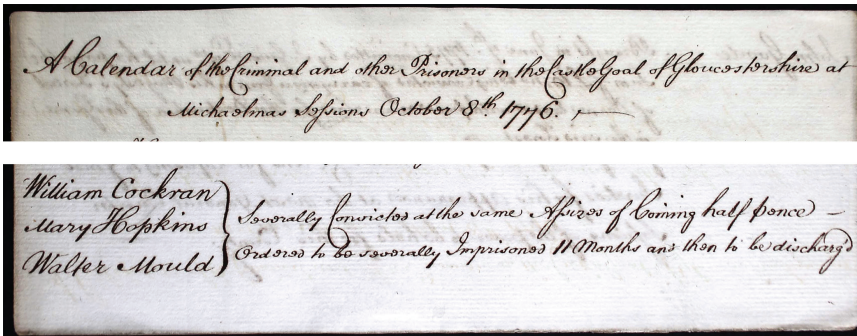 A Calendar of the Criminal and other Prisoners in the Castle Goal of Gloucestershire at
Michaelmas Sessions October 8th. 1776.
William Cockran
Mary Hopkins
Walter Mould
Severally Convicted at the same Assizes of Coining half pence –
Ordered to be severally Imprisoned 11 Months and then to be discharg'd